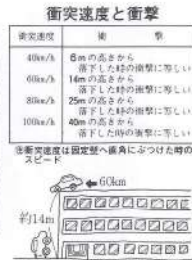 衝突速度と衝撃
衝突速度 衝撃
40km/h 6mの高さから
落下した時の衝撃に等しい
60km/h 14mの高さから
落下した時の衝撃に等しい
80km/h 25mの高さから
落下した時の衝撃に等しい
100km/h 40mの高さから
落下した時の衝撃に等しい
衝突速度は固定壁へ直角にぶつけた時の
スピード
60km
約14m